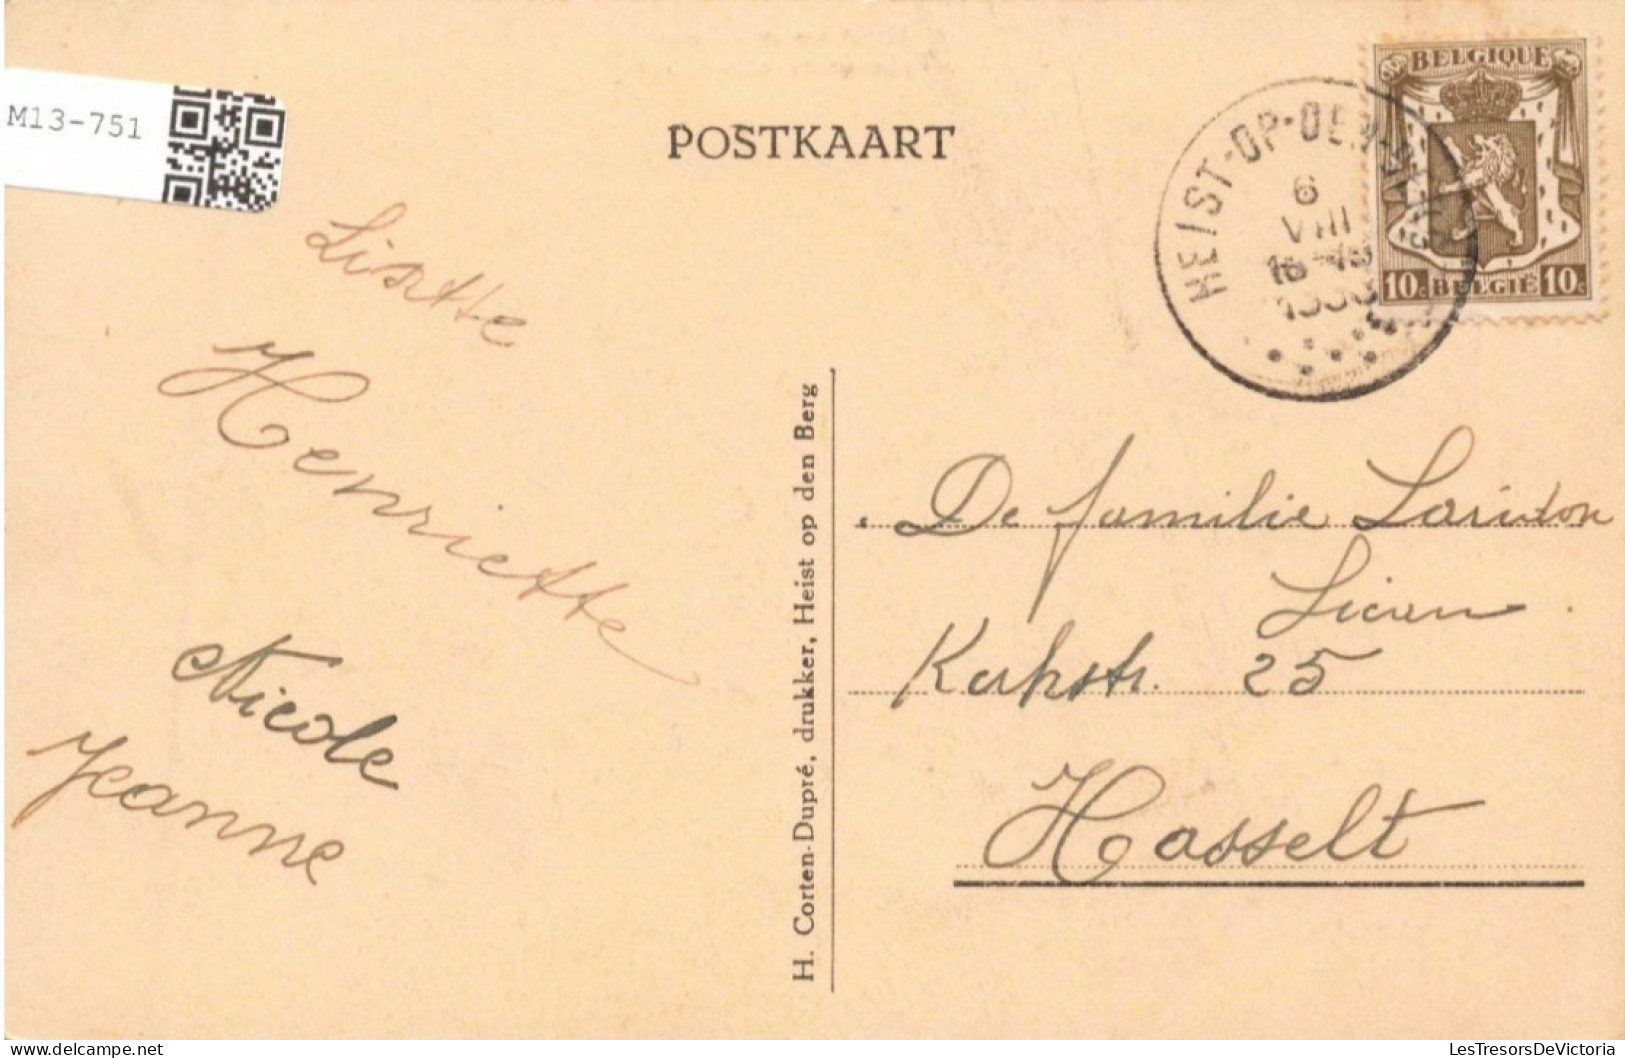 M13-751
POSTKAART
BELGIQUE
10c BELGIË 10c
HEIST-OP-DEN-BERG
6
VIII
Lisette
Henriette
Nicole
Jeanne
H. Corten-Dupré, drukker, Heist op den Berg
De familie Laridon
Kerkstr. 25
Hasselt
LesTresorsDeVictoria